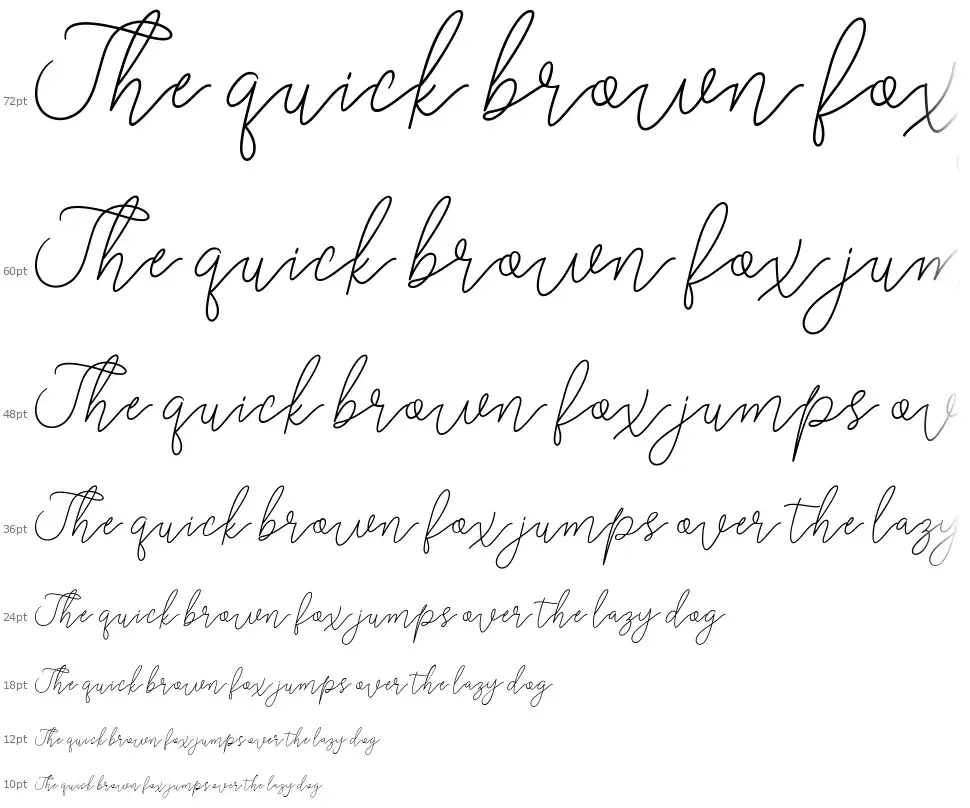 72pt The quick brown fox
60pt The quick brown fox jum
48pt The quick brown fox jumps ov
36pt The quick brown fox jumps over the lazy
24pt The quick brown fox jumps over the lazy dog
18pt The quick brown fox jumps over the lazy dog
12pt The quick brown fox jumps over the lazy dog
10pt The quick brown fox jumps over the lazy dog